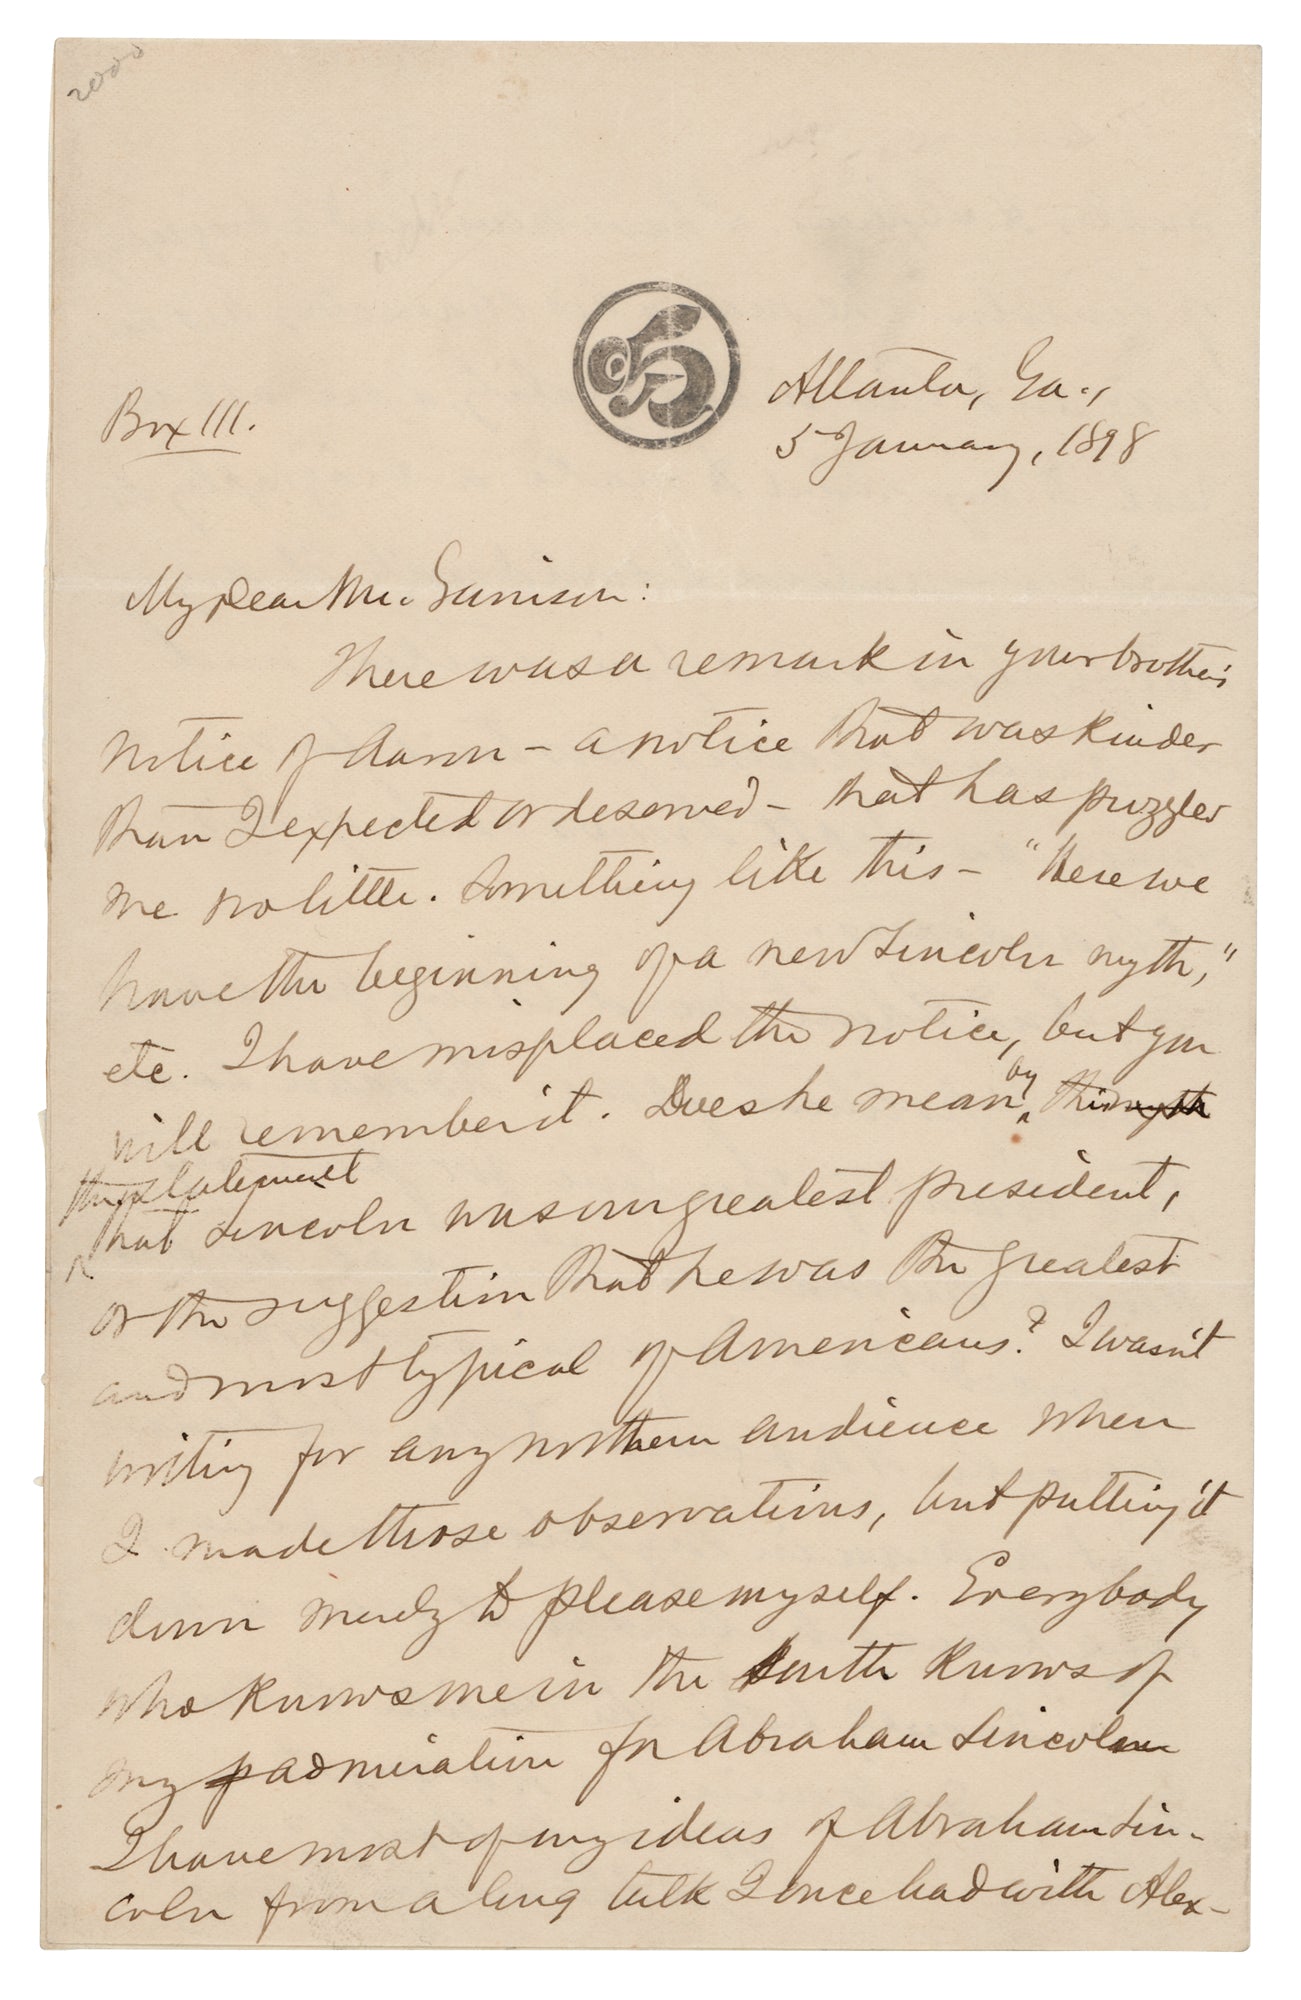 2000
Box 111.
Atlanta, Ga.,
5 January, 1898
My dear Mr. Garrison:
There was a remark in your brother's
notice of Aaron — a notice that was kinder
than I expected or deserved — that has puzzled
me no little. Something like this — "Here we
have the beginning of a new Lincoln myth,"
etc. I have misplaced the notice, but you
will remember it. Does he mean by this myth
the statement
that Lincoln was our greatest president,
or the suggestion that he was the greatest
and most typical of Americans? I wasn't
writing for any northern audience when
I made those observations, but putting it
down merely to please myself. Everybody
who knows me in the South knows of
my admiration for Abraham Lincoln
I have most of my ideas of Abraham Lin-
coln from a long talk I once had with Alex-